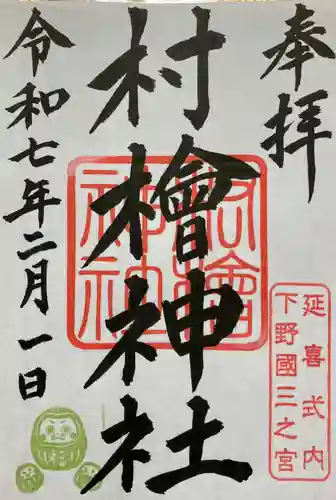 奉拝
延喜式内
下野國三之宮
村檜神社
村檜神社
令和七年二月一日